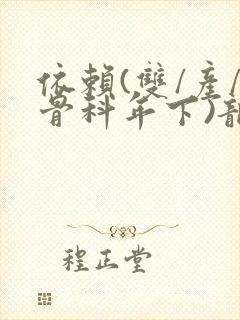 依賴(雙/產/
骨科年下)
程正堂